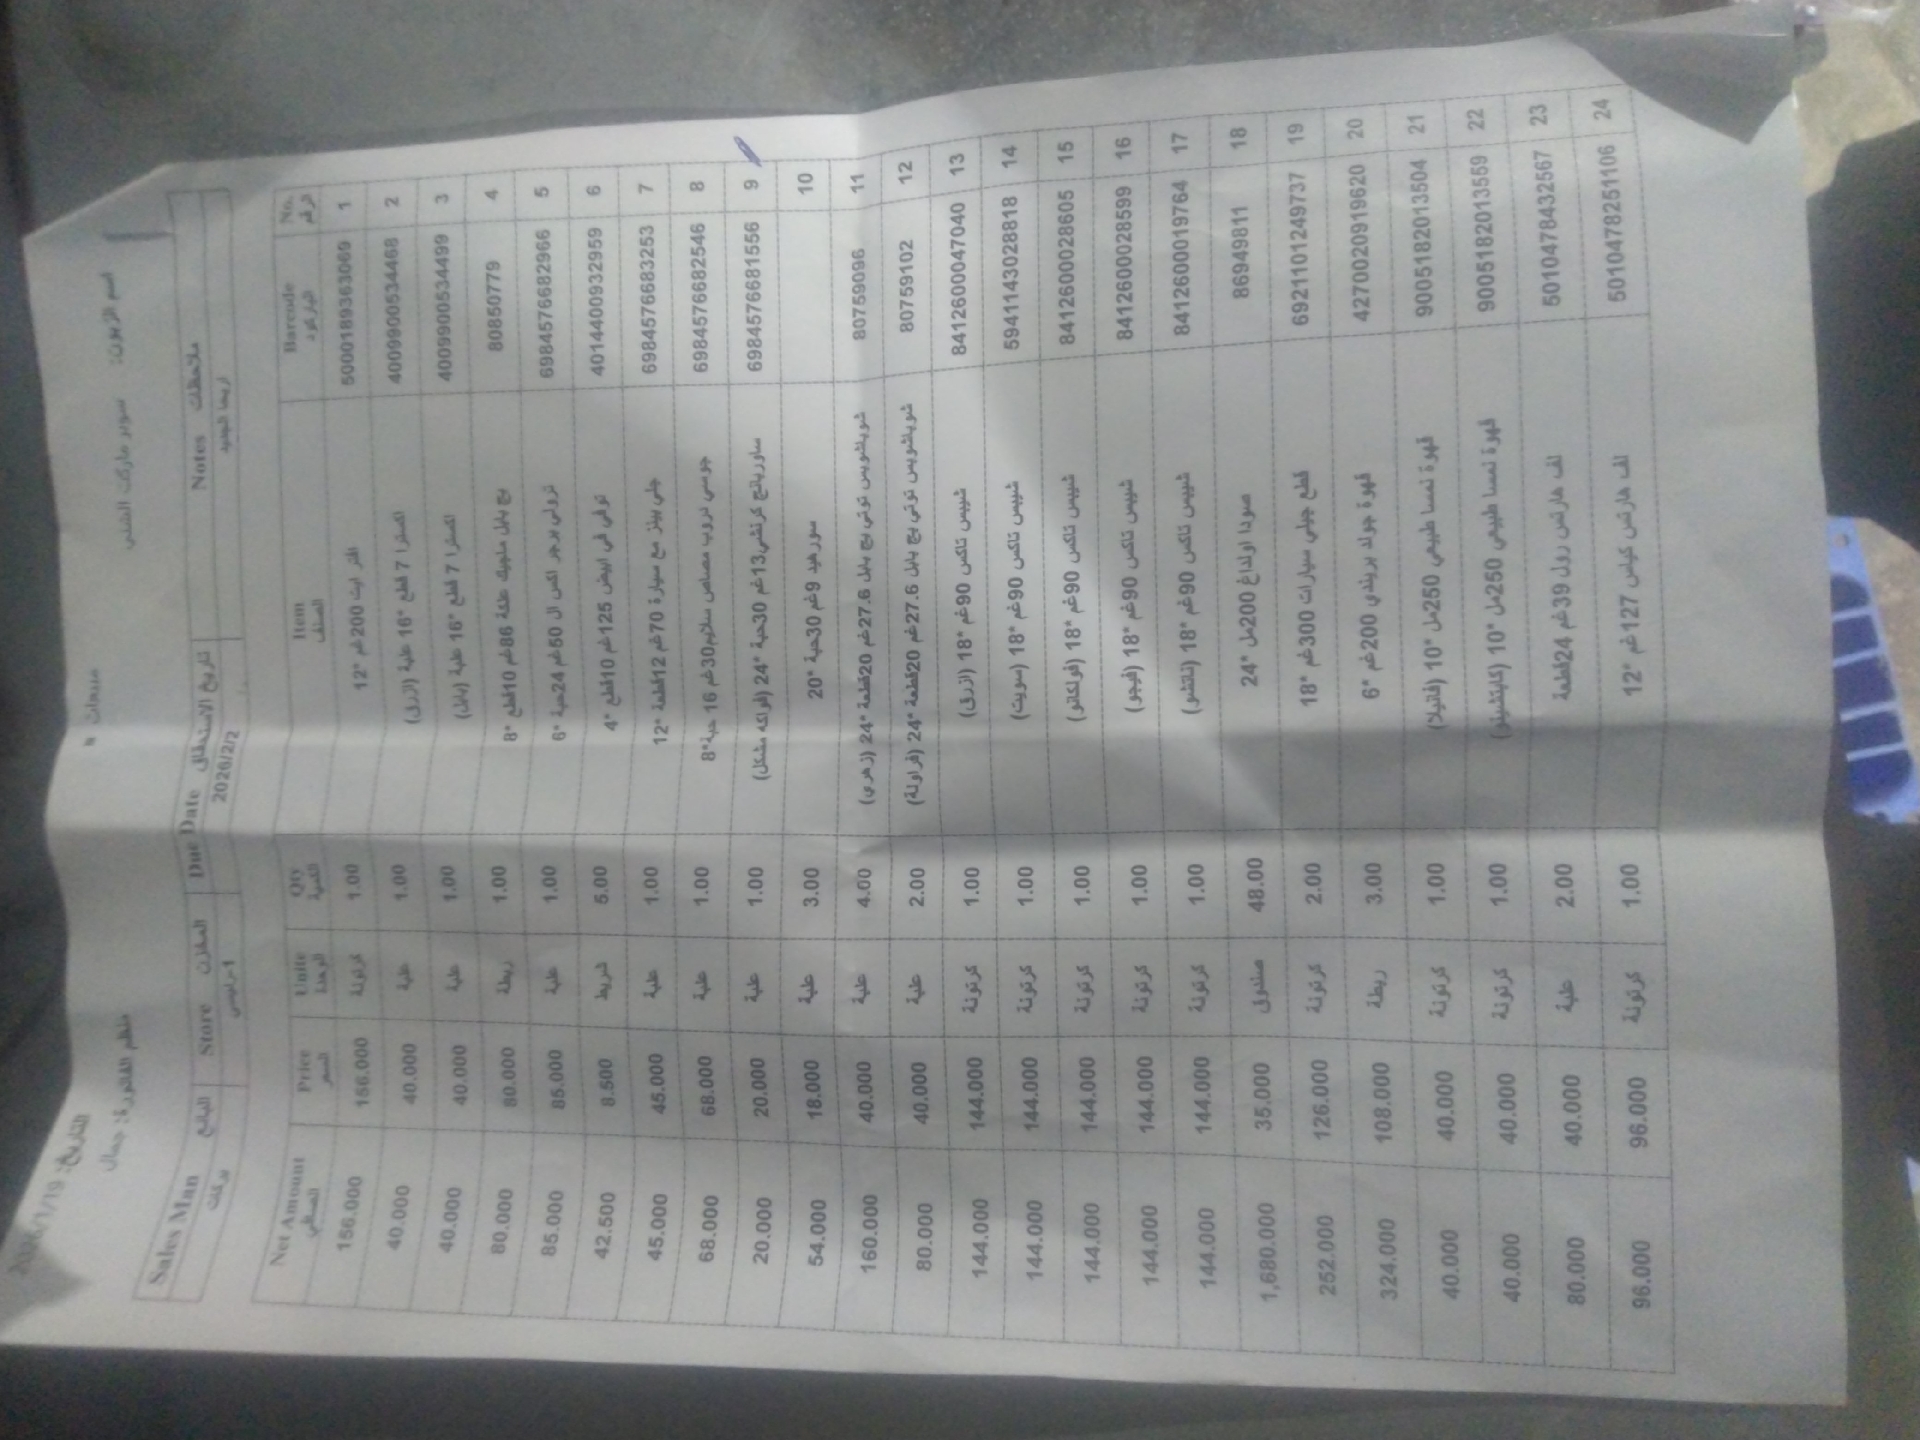 مبيعات
التاريخ: 2026/1/19
اسم الزبون: سوبر ماركت
منظم الفاتورة: جمال
Notes ملاحظات Due Date تاريخ الاستحقاق Store المخزن Sales Man البائع
2026/2/2 بركات
No. الرقم Barcode الباركود Item الصنف Qty الكمية Unite الوحدة Price السعر Net Amount الصافي
1 5000189363069 200غم *12 1.00 كرتونة 156.000 156.000
2 4009900534468 اكسترا 7 قطع *16 علبة (ازرق) 1.00 علبة 40.000 40.000
3 4009900534499 اكسترا 7 قطع *16 علبة (بابل) 1.00 علبة 40.000 40.000
4 80850779 بج بابل علكة 86غم 10قطع *8 1.00 ربطة 80.000 80.000
5 6984576682966 ترولي برجر اكس ال 50غم 24حبة *6 1.00 علبة 85.000 85.000
6 4014400932959 توفي في ابيض 125غم 10قطع *4 5.00 شريط 8.500 42.500
7 6984576683253 جلي بينز مع سيارة 70غم 12قطعة *12 1.00 علبة 45.000 45.000
8 6984576682546 جوسي دروب مصاص سلايم 30غم 16 حبة*8 1.00 علبة 68.000 68.000
9 6984576681556 ساور بانج كرنشي 13غم 30حبة *24 (فواكه مشكل) 1.00 علبة 20.000 20.000
10 سور هيد 9غم 30حبة *20 3.00 علبة 18.000 54.000
11 80759096 شوباشوبس توتي بج بابل 27.6غم 20قطعة *24 (زهري) 4.00 علبة 40.000 160.000
12 80759102 شوباشوبس توتي بج بابل 27.6غم 20قطعة *24 (فراولة) 2.00 علبة 40.000 80.000
13 8412600047040 شيبس تاكس 90غم *18 (ازرق) 1.00 كرتونة 144.000 144.000
14 5941143028818 شيبس تاكس 90غم *18 (سويت) 1.00 كرتونة 144.000 144.000
15 8412600028605 شيبس تاكس 90غم *18 (فولكانو) 1.00 كرتونة 144.000 144.000
16 8412600028599 شيبس تاكس 90غم *18 (فيجو) 1.00 كرتونة 144.000 144.000
17 8412600019764 شيبس تاكس 90غم *18 (ناتشو) 1.00 كرتونة 144.000 144.000
18 86949811 صودا اولداغ 200مل *24 48.00 صندوق 35.000 1,680.000
19 6921101249737 قطع جيلي سيارات 300غم *18 2.00 كرتونة 126.000 252.000
20 4270020919620 قهوة جولد بريندي 200غم *6 3.00 ربطة 108.000 324.000
21 9005182013504 قهوة نمسا طبيعي 250مل *10 (فانيلا) 1.00 كرتونة 40.000 40.000
22 9005182013559 قهوة نمسا طبيعي 250مل *10 (كابتشينو) 1.00 كرتونة 40.000 40.000
23 5010478432567 لف هارتس رول 39غم 24قطعة 2.00 علبة 40.000 80.000
24 5010478251106 لف هارتس كياس 127غم *12 1.00 كرتونة 96.000 96.000